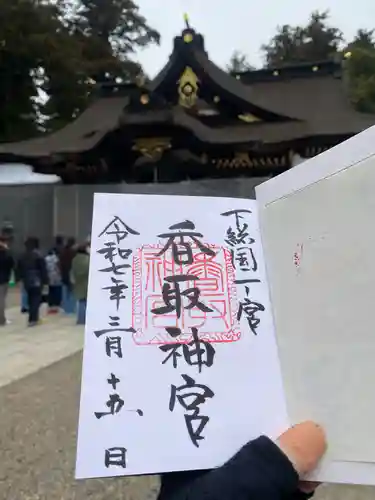 下総国一之宮
香取神宮
令和七年三月十五日